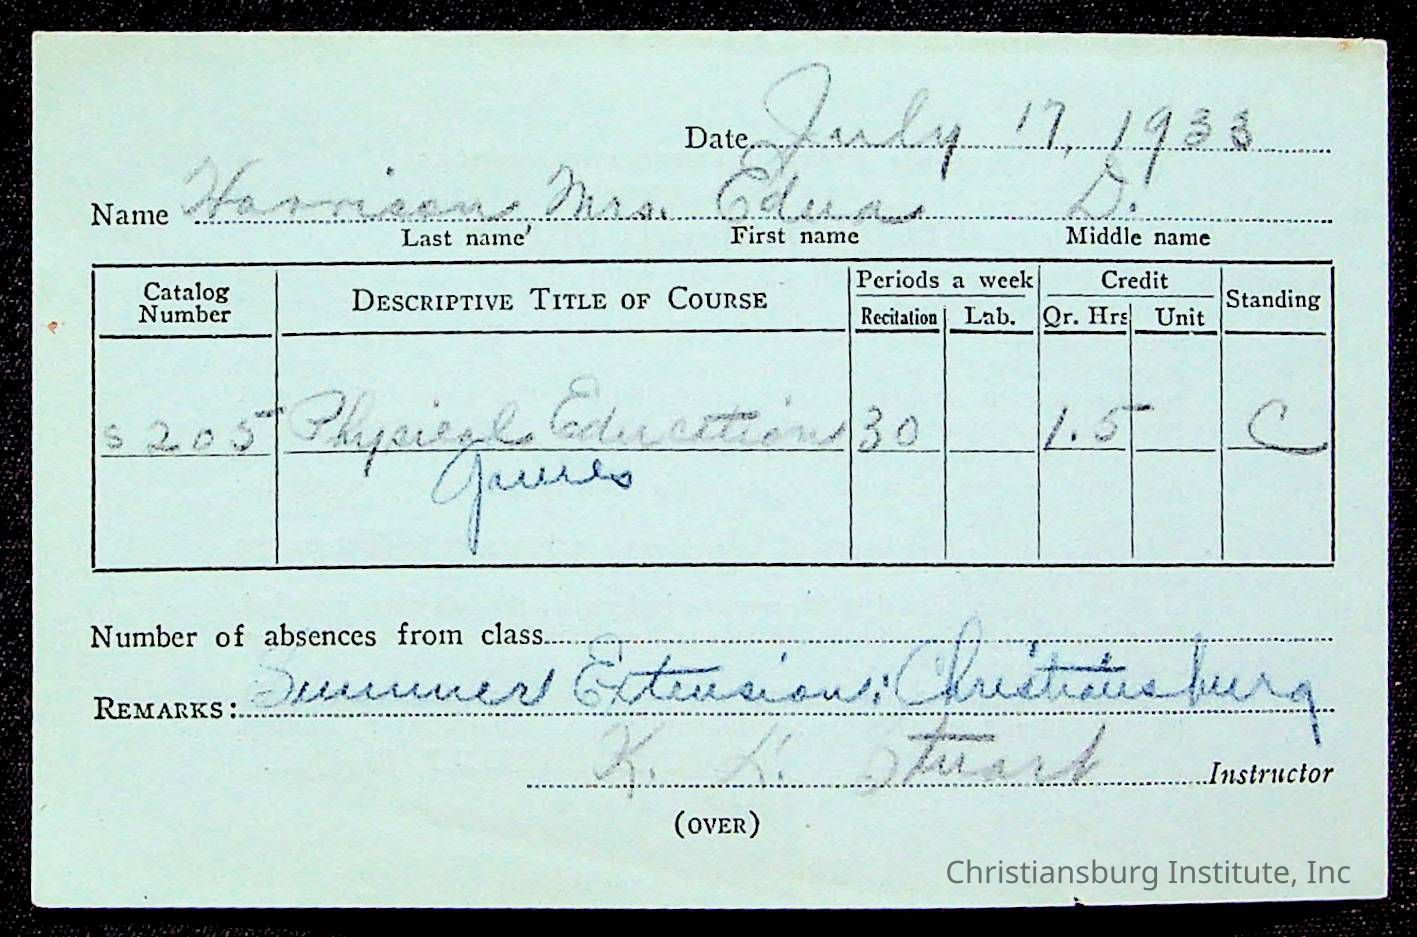 Date July 17, 1933
Name Harrison Mrs. Edna D.
Last name First name Middle name
Catalog Number DESCRIPTIVE TITLE OF COURSE Periods a week Credit Standing
Recitation Lab. Qr. Hrs Unit
S 205 Physical Education 30 1.5 C
Games
Number of absences from class
REMARKS: Summer Extension: Christiansburg
K. Stuart Instructor
(OVER)
Christiansburg Institute, Inc